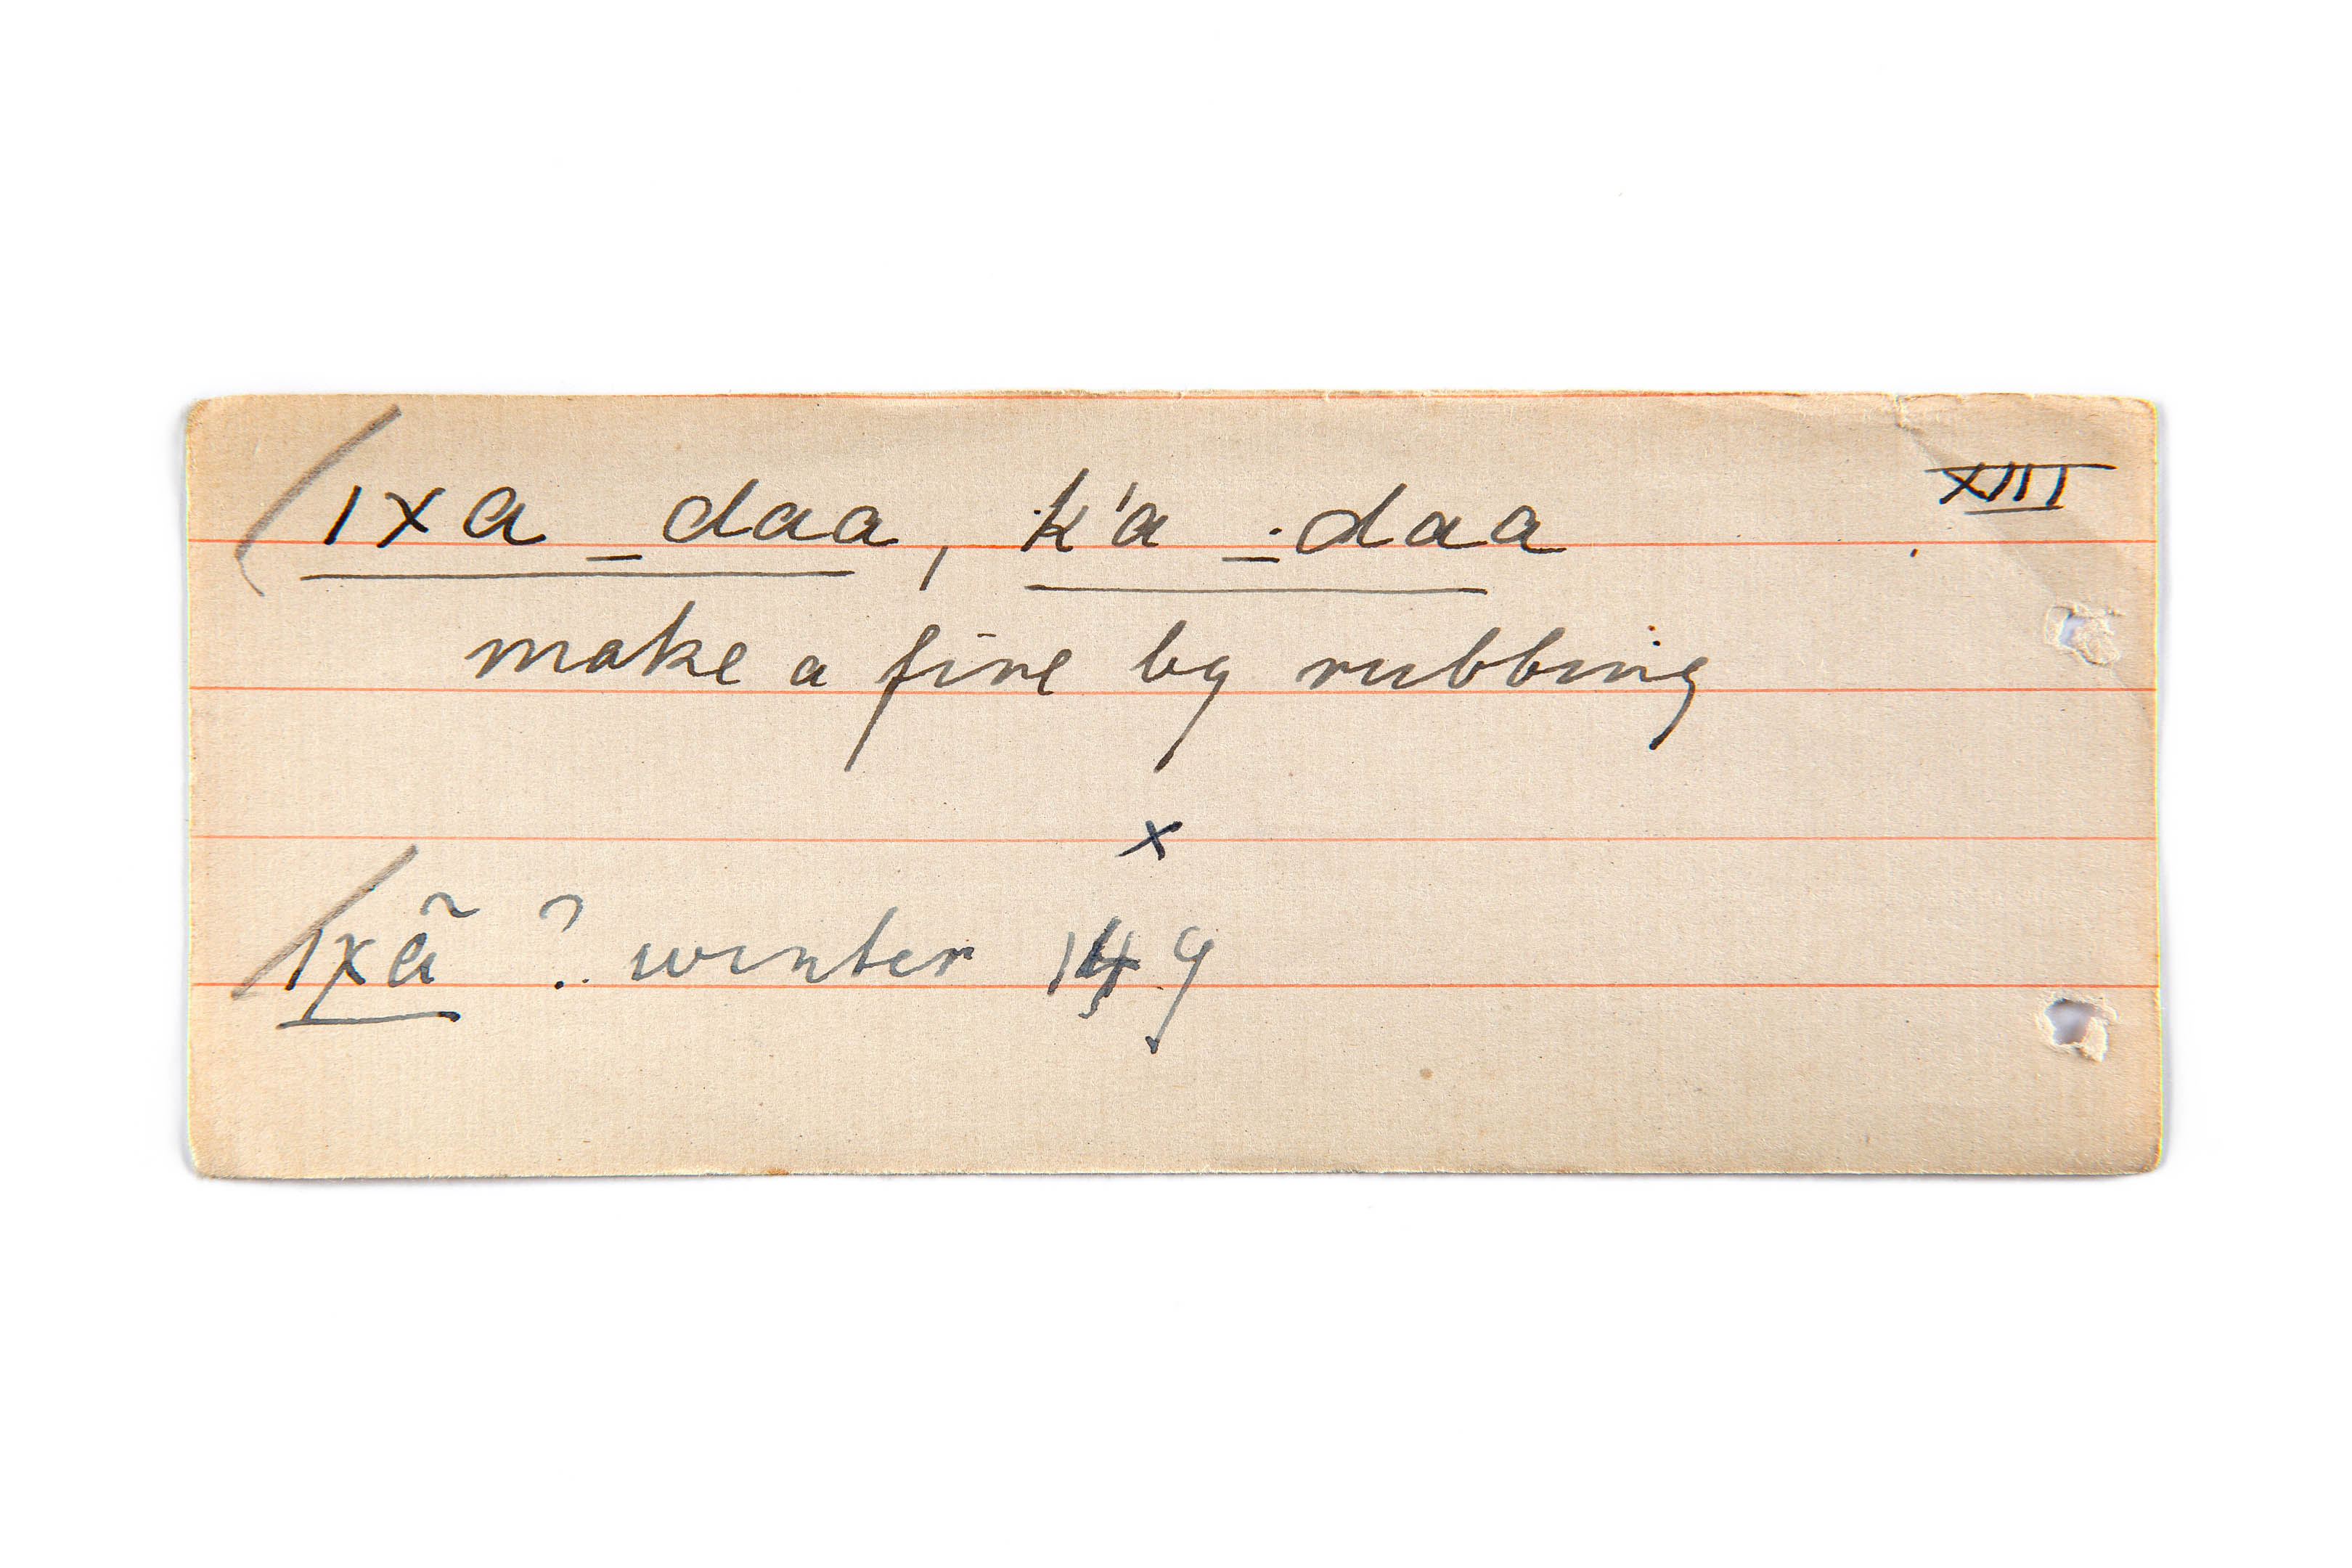 XIII
|xa _daa, k'a _daa
make a fire by rubbing
x
|xã ? winter 149